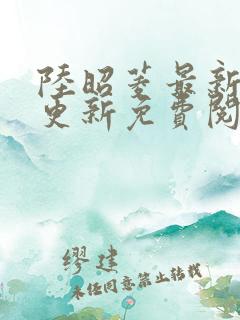 陸昭菱最新
更新免費閱
繆建
未經同意禁止轉載